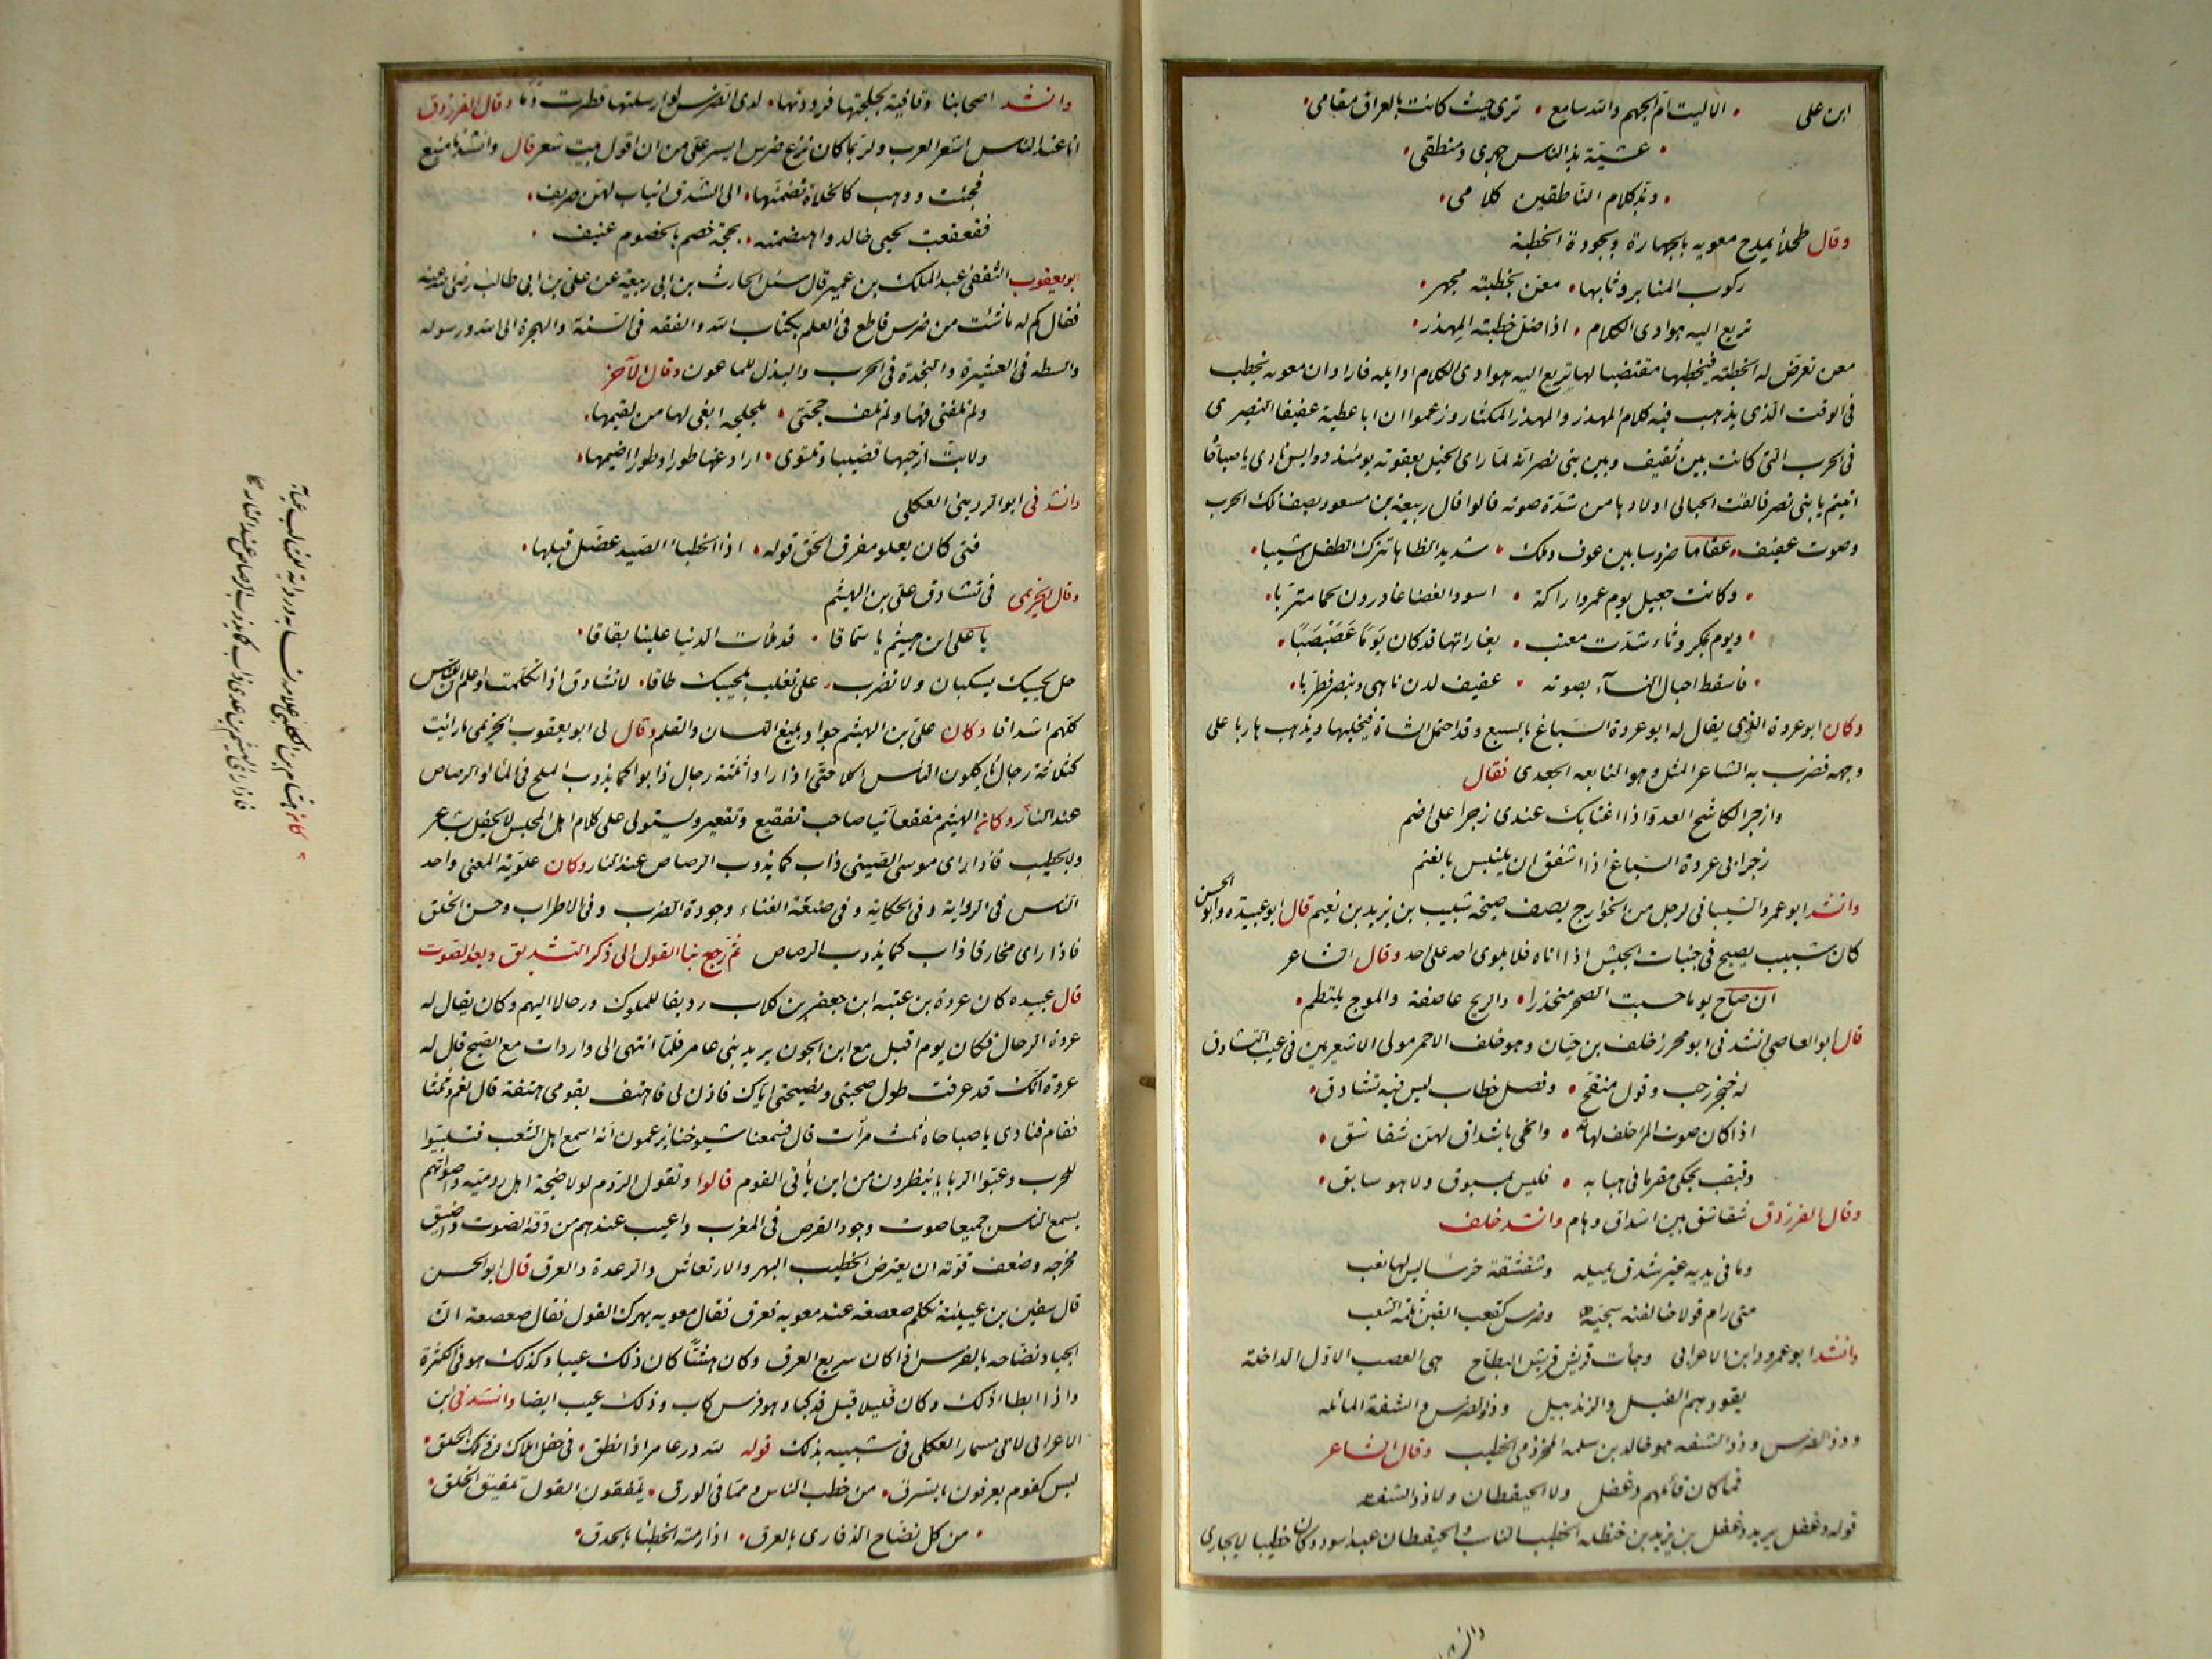 ابن على • الا ليت ام الجهم والله سامع • ترى حيث كانت بالعراق مقامى •
• عشيّة بذ الناس جهرى ومنطقى •
• وبذ كلام الناطقين كلامى •
وقال طحلأ يمدح معويه بالجهارة وبجودة الخطبة
ركوب المنابر وثابها • معن بخطبته مجهر •
تريع اليه هوادى الكلام • اذا ضلّ خطبته المهذر •
معن تعرّض له الخطبة فيخطبها مقتضبا لها تريع اليه هوادى الكلام اوايله فاراد ان معويه يخطب
فى الوقت الذى يذهب فيه كلام المهذر والمهذر المكثار وزعموا ان ابا عطية عفيفا النصرى
فى الحرب التى كانت بين ثقيف وبين بنى نصر انّه لمّا راى الخيل بعقوته يومئذ دوايس نادى يا صباحا
اتيتم يا بنى نصر فالقت الحبالى اولادها من شدّة صوته قالوا فقال ربيعة بن مسعود يصف تلك الحرب
وصوت عفيف • عقاما ضروسا بين عوف ومالك • شديدا لظاها تترك الطفل اشيبا •
• وكانت جعيل يوم عمرو اراكة • اسود الغضا غادرون لحما متربا •
• ويوم بمكروثاء شدّت معتب • بغاراتها قد كان يَومًا عَصَبْصَبًا •
• فاسقط احبال النسآء بصوته • عفيف لدن نادى بنصر فطربا •
وكان ابو عروة الذى يقال له ابو عروة السباع يصيح بالسبع وقد احتمل الشاة فيخليها ويذهب هاربا على
وجهه فضرب به الشاعر المثل وهو النابغه الجعدى فقال
وازجر الكاشح العدوّ اذا اغتابك عندى زجرا على اضم
زجر ابى عروة السباع اذا اشفق ان يلتبس بالغنم
وانشد ابو عمرو الشيبانى لرجل من الخوارج يصف صيحة شبيب بن يزيد بن نعيم قال ابو عبيده وابو الحسن
كان شبيب يصيح فى جنبات الجيش اذا اتاه فلا يلوى احد على احد وقال الشاعر
ان صاح يوما حسبت الصخر منحدرا • والريح عاصفة والموج يلتطم •
قال ابو العاصى انشدنى ابو محرز خلف بن حيّان وهو خلف الاحمر مولى الاشعريين فى عيب التشادق
له حنجر رحب وقول منقح • وفصل خطاب ليس فيه تشادق •
اذا كان صوت المرء خلف لهاته • وانحى باشداق لهنّ شقاشق •
وقبقب يحكى مقرما فى هبابه • فليس بمسبوق ولا هو سابق •
وقال الفرزدق شقاشق بين اشداق وهام وانشد خلف
وما فى يديه غير شدق يميله وشقشقة خرسا ليس لها نعب
متى رام قولا خالفته سجيّة وضرس كقعب القين ثلمه الشعب
وانشد ابو عمرو وابن الاعرابى وجأت قريش قريش البطاح هى العصب الاوّل الداخلة
يقودهم الفيل والزندبيل وذو الضرس والشفة المائله
وذو الضرس وذو الشفه هو خالد بن سلمه المخزومى الخطيب وقال الشاعر
فما كان قائلهم دغفل ولا الحيقطان ولا ذو الشفه
قوله دغفل يريد دغفل بن يزيد بن حنظله الخطيب الناسب والحيقطان عبد اسود وكان خطيبا لا يجارى
وانشد اصحابنا وقافية لجلجتها فرددتها • لدى الضرس لو ارسلتها قطرت دّما وقال الفرزدق
انا عند الناس اشعر العرب ولربما كان نزع ضرس ايسر علىّ من ان اقول بيت شعر قال وانشدنا منيع
فجئت ووهب كالخلاة تضمّنها • الى الشّدق انياب لهنّ صريف •
فقعقعت لحيى خالد واهتضمته • بحجّة خصم بالخصوم عنيف •
ابو يعقوب الثقفى عبد الملك بن عمير قال سئل الحارث بن ابى ربيعة عن على بن ابى طالب رضى الله عنه
فقال كم له ما شئت من ضرس قاطع فى العلم بكتاب الله والفقه فى السّنة والهجرة الى الله ورسوله
والسطه فى العشيرة والنجدة فى الحرب والبذل للماعون وقال الآخر
ولم تلفنى فهّا ولم تلف حجّتى • ملجلجه ابغى لها من يقيمها •
ولا بتّ ازجيها قضيبا وتلتوى • اراوغها طورا وطورا اضيمها •
وانشدنى ابو الردينى العكلى
فتى كان يعلو مفرق الحقّ قوله • اذا الخطباء الصّيد عضّل قيلها •
وقال الخريمى فى تشادق على بن الهيثم
يا على ابن هيثم يا سمّاقا • قد ملأت الدنيا علينا بقاقا •
خل لحييك يسكنان ولا تضرب • على تغلب بلحييك طاقا • لا تشادق اذا تكلّمت واعلم ان للناس
كلّهم اشداقا وكان على بن الهيثم جوادا بليغ اللسان والقلم وقال لى ابو يعقوب الخريمى ما رايت
كثلاثة رجال ياكلون الناس اكلا حتّى اذا راوا ثلثة رجال ذابوا كما يذوب الملح فى الما والرصاص
عند النار وكان الهيثم مفقعا نيا صاحب تفقيع وتقعير ويستولى على كلام اهل المجلس لا يحفل بشاعر
ولا بخطيب فاذا راى موسى الضبى ذاب كما يذوب الرصاص عند النار وكان علويّه المغنى واحد
الناس فى الرواية وفى الحكاية وفى صنعة الغناء وجودة الضرب وفى الاطراب وحسن الخلق
فاذا راى مخارقا ذاب كما يذوب الرصاص ثمّ رجع بنا القول الى ذكر التشديق وبعد الصّوت
قال عبيده كان عروة بن عتبه ابن جعفر بن كلاب رديفا للملوك ورحالا اليهم وكان يقال له
عروة الرحال فكان يوم اقبل مع ابن الجون يريد بنى عامر فلمّا انتهى الى واردات مع الصّبح قال له
عروة انّك قد عرفت طول صحبتى ونصيحتى ايّاك فاذن لى فاهتف بقومى هتفة قال نعم وثلثا
فقام فنادى يا صباحاه ثلث مرّات قال فسمعنا شيوخنا يزعمون انّه اسمع اهل الشعب فتلببوا
للحرب وعبّوا الربايا ينظرون من اين يأتى القوم قالوا وتقول الرّوم لولا ضجة اهل روميّه واصواتهم
يسمع الناس جميعا صوت وجوب القرص فى المغرب واعيب عندهم من دقّة الصّوت وضيق
مخرجه وضعف قوّته ان يعترض الخطيب البهر والارتعاش والرعدة والعرق قال ابو الحسن
قال سفين بن عيينة تكلّم صعصعه عند معويه فعرق فقال معويه بهرك القول فقال صعصعه انّ
الجياد نضّاحه بالفرس اذا كان سريع العرق وكان هشّا كان ذلك عيبا وكذلك هو فى الكثرة
واذا ابطا ذلك وكان قليلا قيل قد كبا وهو فرس كاب وذلك عيب ايضا وانشدنى ابن
الاعرابى لابى مسمار العكلى فى شبيه بذلك قوله لله در عامر اذا نطق • فى حفل املاك وفى تلك الحلق •
ليس كقوم يعرفون بالسرق • من خطب الناس وممّا فى الورق • يلفقون القول تلفيق الخلق •
• من كل نضّاح الذفارى بالعرق • اذا رمته الخطبا بالحدق •